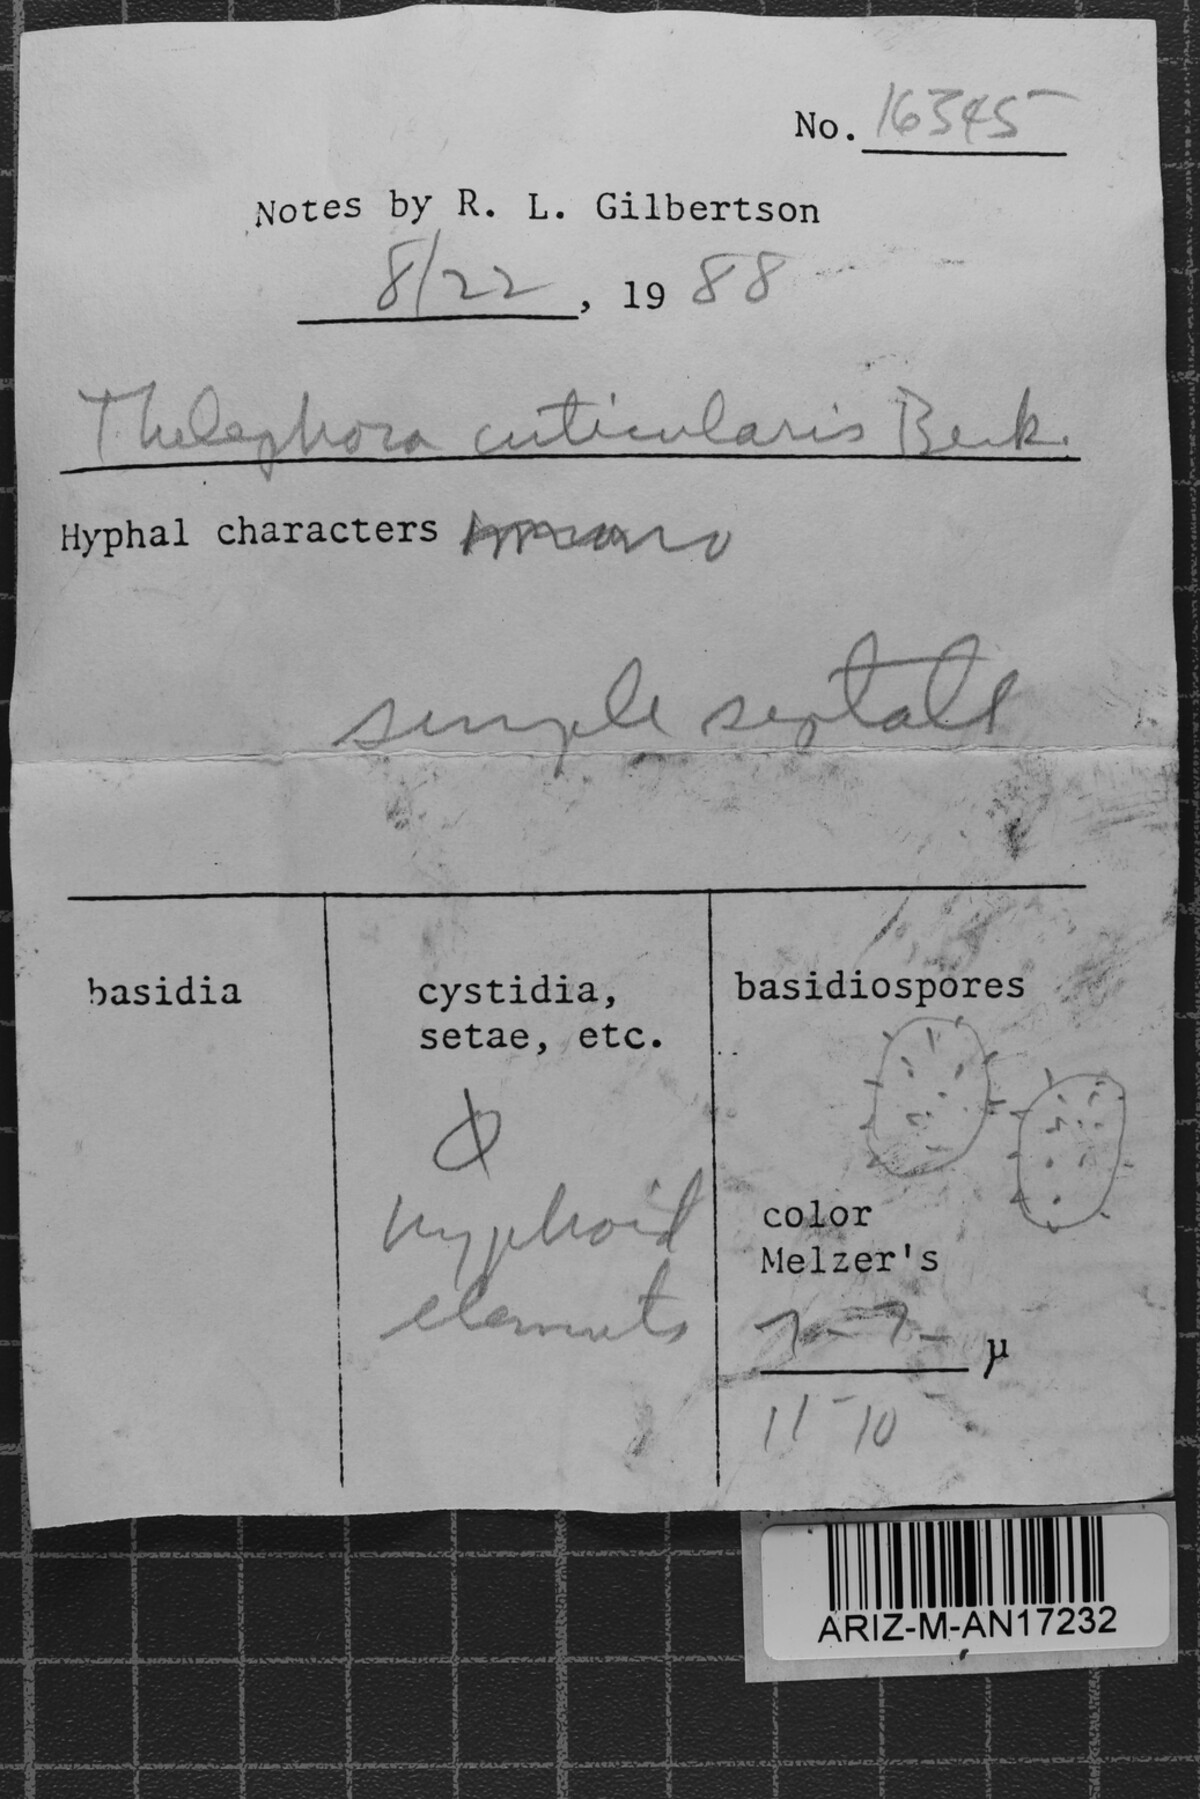 No. 16345
Notes by R. L. Gilbertson
8/22, 19 88
Thelephora cuticularis Berk.
Hyphal characters
simple septate
basidia
cystidia,
setae, etc.
hyphoid
elements
basidiospores
color
Melzer's
7- 7- µ
11- 10
ARIZ-M-AN17232